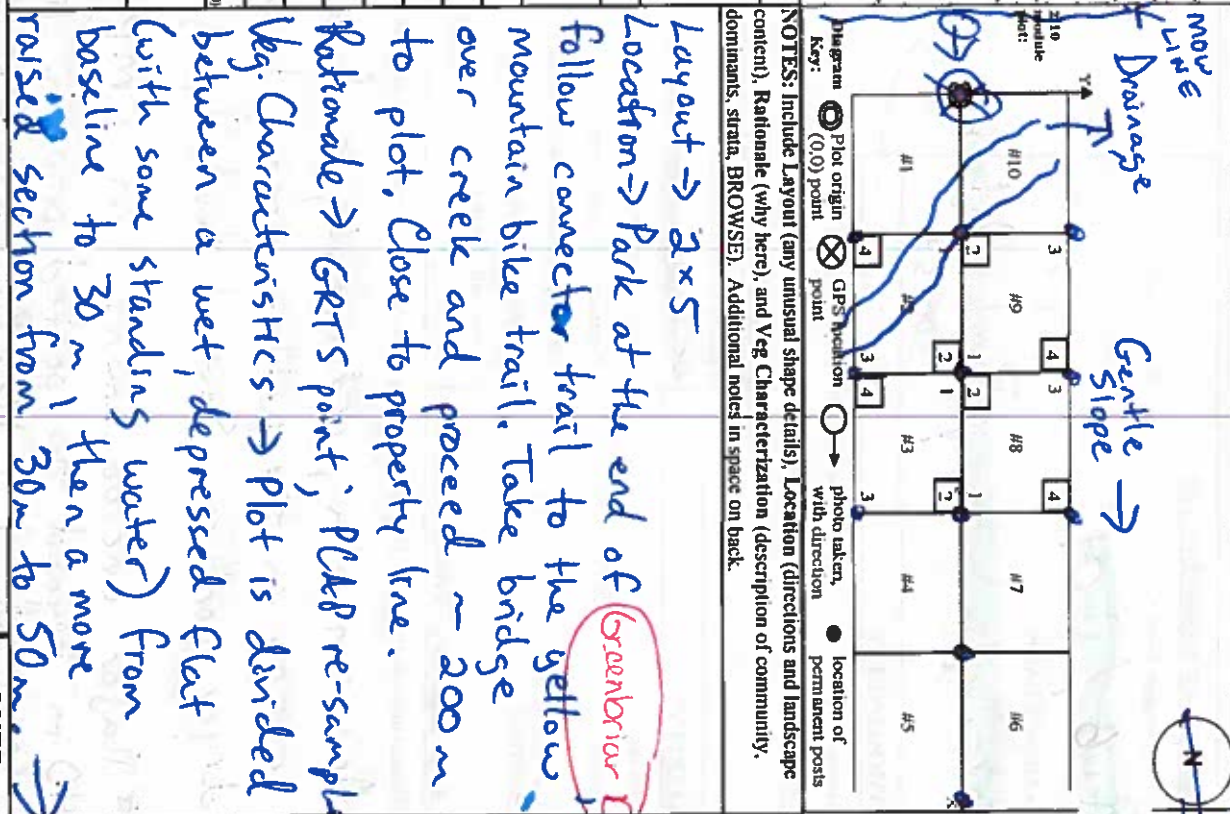 MOW
LINE
Drainage
Gentle
slope →
N
2x10
module
plot:
Y
#10
#9
#8
#7
#6
#1
#2
#3
#4
#5
3
4
3
4
2
1
2
1
2
1
2
1
2
4
3
4
3
X
Diagram Key: Plot origin (0,0) point
GPS location point
photo taken, with direction
location of permanent posts
NOTES: Include Layout (any unusual shape details), Location (directions and landscape
content), Rationale (why here), and Veg Characterization (description of community,
dominants, strata, BROWSE). Additional notes in space on back.
Layout → 2x5
Location → Park at the end of Greenbriar
follow connector trail to the yellow
mountain bike trail. Take bridge
over creek and proceed ~ 200 m
to plot. Close to property line.
Rationale → GRTS point, PCAP re-sample
Veg. Characteristics → Plot is divided
between a wet, depressed flat
(with some standing water) from
baseline to 30 m then a more
raised section from 30m to 50m. →